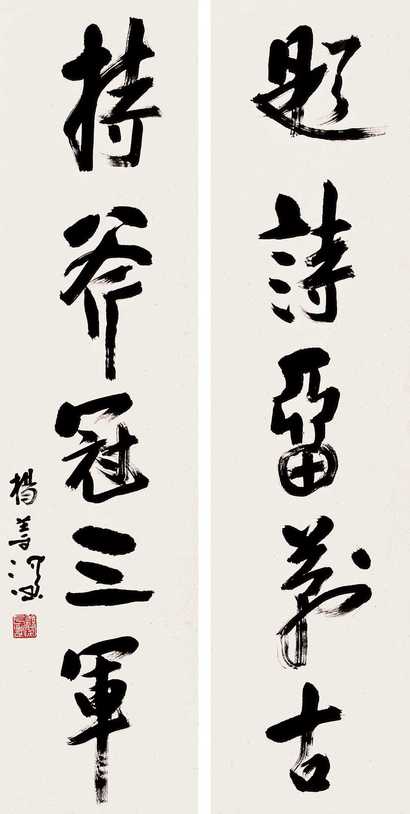 題詩留萬古
持斧冠三軍
楊善深